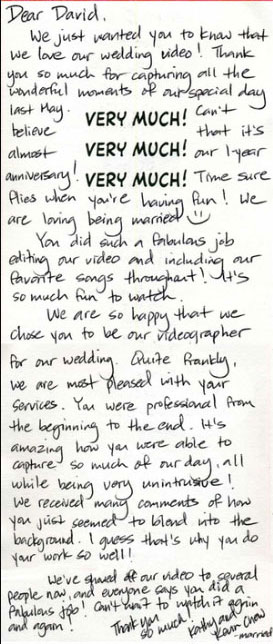 Dear David,
We just wanted you to know that
we love our wedding video! Thank
you so much for capturing all the
wonderful moments of our special day
last May. VERY MUCH! Can't
believe that it's
almost VERY MUCH! our 1-year
anniversary! VERY MUCH! Time sure
flies when you're having fun! We
are loving being married
You did such a fabulous job
editing our video and including our
favorite songs throughout! It's
so much fun to watch.
We are so happy that we
chose you to be our videographer
for our wedding. Quite frankly,
we are most pleased with your
services. You were professional from
the beginning to the end. It's
amazing how you were able to
capture so much of our day, all
while being very unintrusive!
We received many comments of how
you just seemed to blend into the
background. I guess that's why you do
your work so well!
We've showed off our video to several
people now, and everyone says you did a
fabulous job! Can't wait to watch it again
and again! Thank you so much! Kathy and
Chow